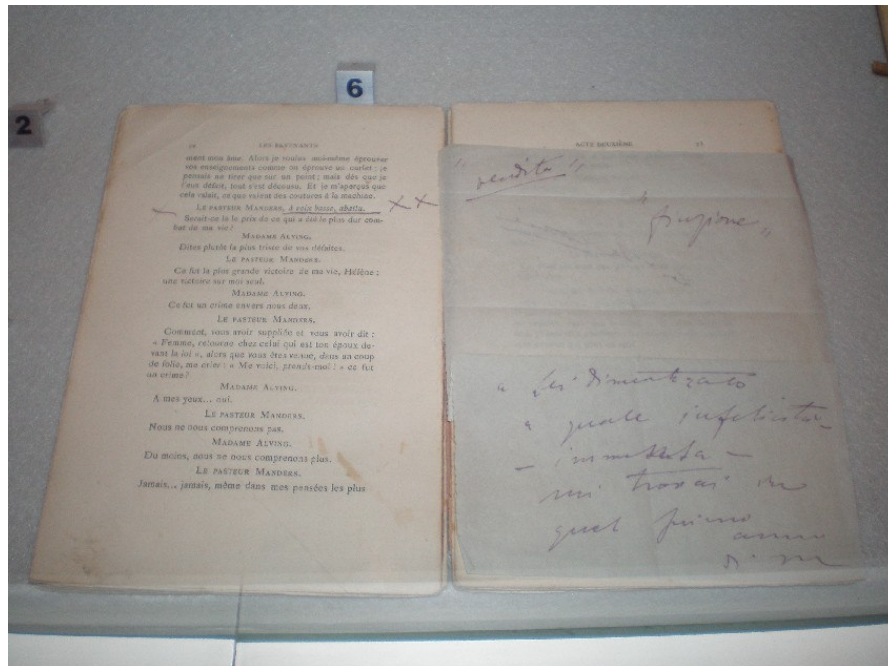 2
6
52 LES REVENANTS
ment mon âme. Alors je voulus moi-même éprouver
vos enseignements comme on éprouve un ourlet : je
pensais ne tirer que sur un point ; mais dès que je
l'eus défait, tout s'est décousu. Et je m'aperçus que
cela valait, ce que valent des coutures à la machine.
LE PASTEUR MANDERS, à voix basse, abattu.
Serait-ce là le prix de ce qui a été le plus dur com-
bat de ma vie ?
MADAME ALVING.
Dites plutôt la plus triste de vos défaites.
LE PASTEUR MANDERS.
Ce fut la plus grande victoire de ma vie, Hélène ;
une victoire sur moi seul.
MADAME ALVING.
Ce fut un crime envers nous deux.
LE PASTEUR MANDERS.
Comment, vous avoir suppliée et vous avoir dit :
« Femme, retourne chez celui qui est ton époux de-
vant la loi », alors que vous êtes venue, dans un coup
de folie, me crier : « Me voici, prends-moi ! » ce fut
un crime ?
MADAME ALVING.
A mes yeux... oui.
LE PASTEUR MANDERS.
Nous ne nous comprenons pas.
MADAME ALVING.
Du moins, nous ne nous comprenons plus.
LE PASTEUR MANDERS.
Jamais... jamais, même dans mes pensées les plus
ACTE DEUXIÈME 53
"vendita"
"
dimenticato
quale infelicità
- immensa -
mi trovai in
quel primo
anno
di